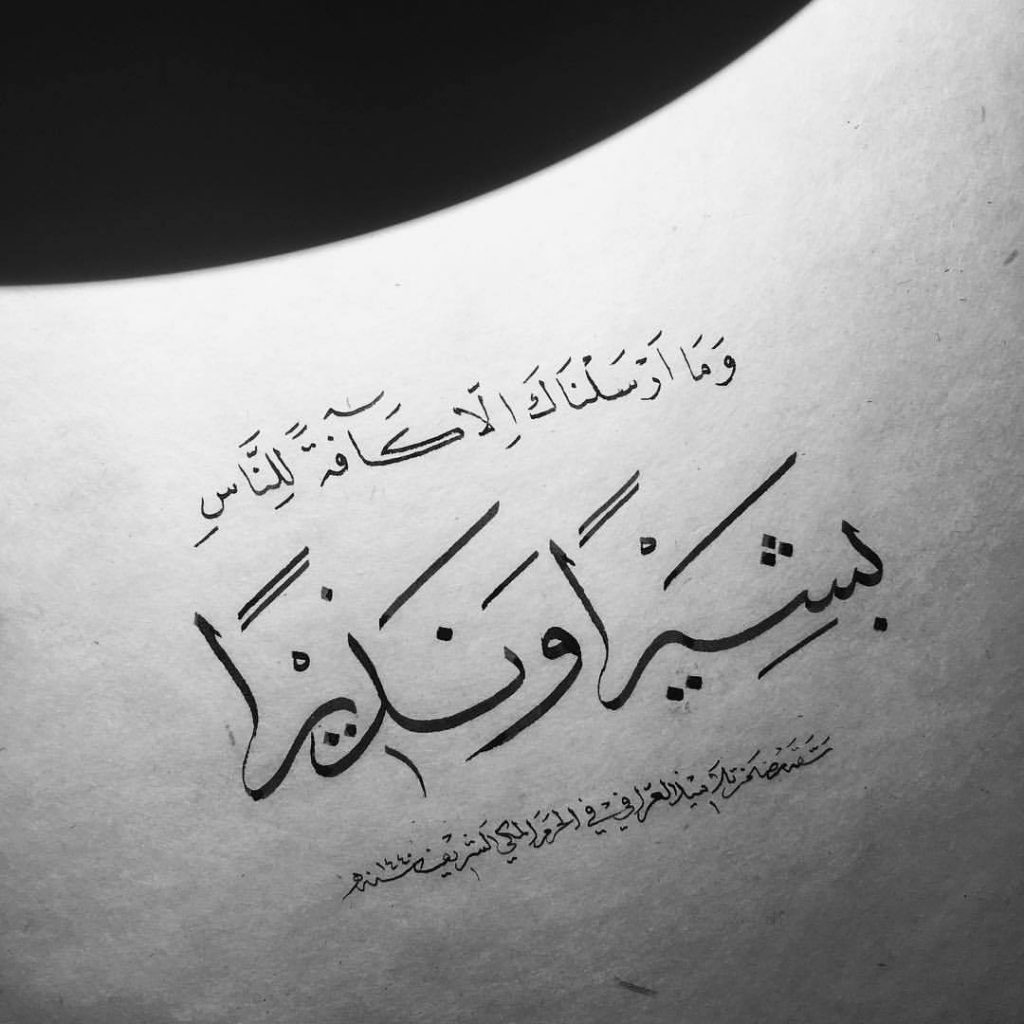 وَمَا اَرْسَلْنَاكَ اِلَّا كَآفَّةً لِلنَّاسِ
بَشِيْرًا وَنَذِيْرًا
العراقي في الحرم المكي الشريف سنة ١٤٤٠